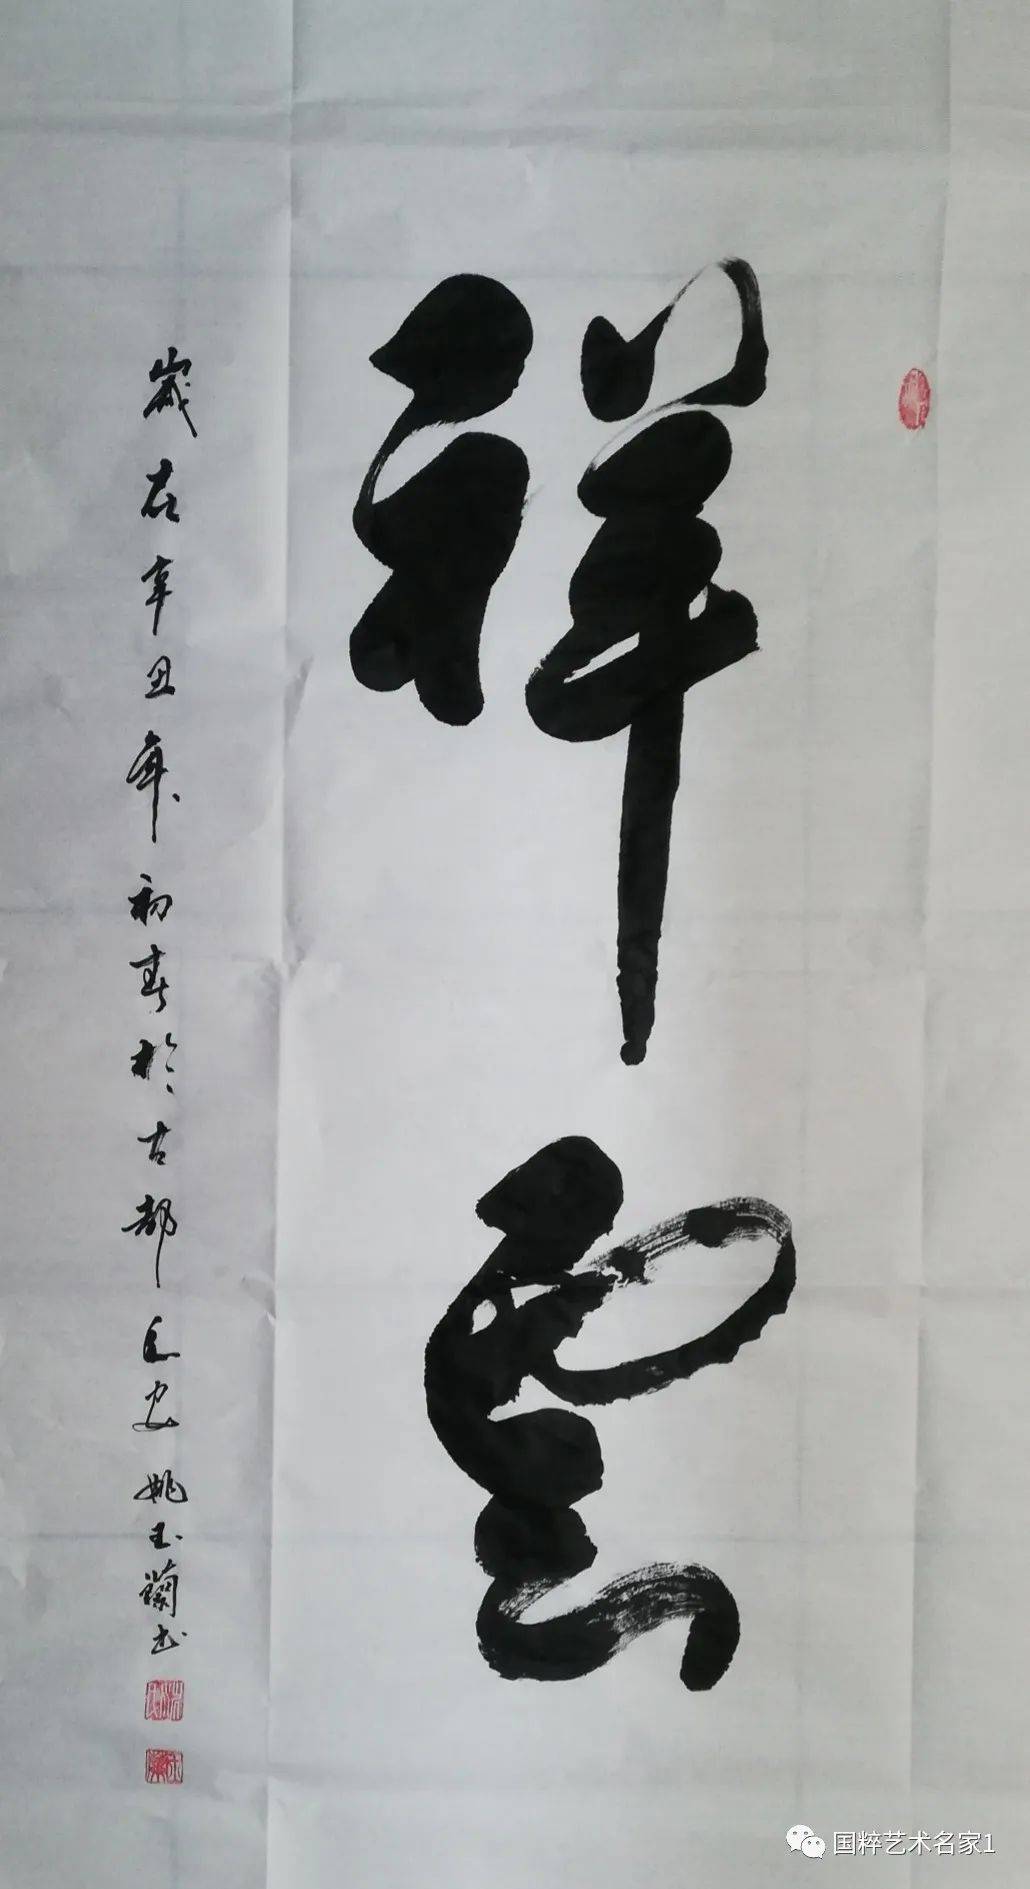 祥雲
歲在辛丑年初春於古都長安姚玉蘭书
国粹艺术名家1